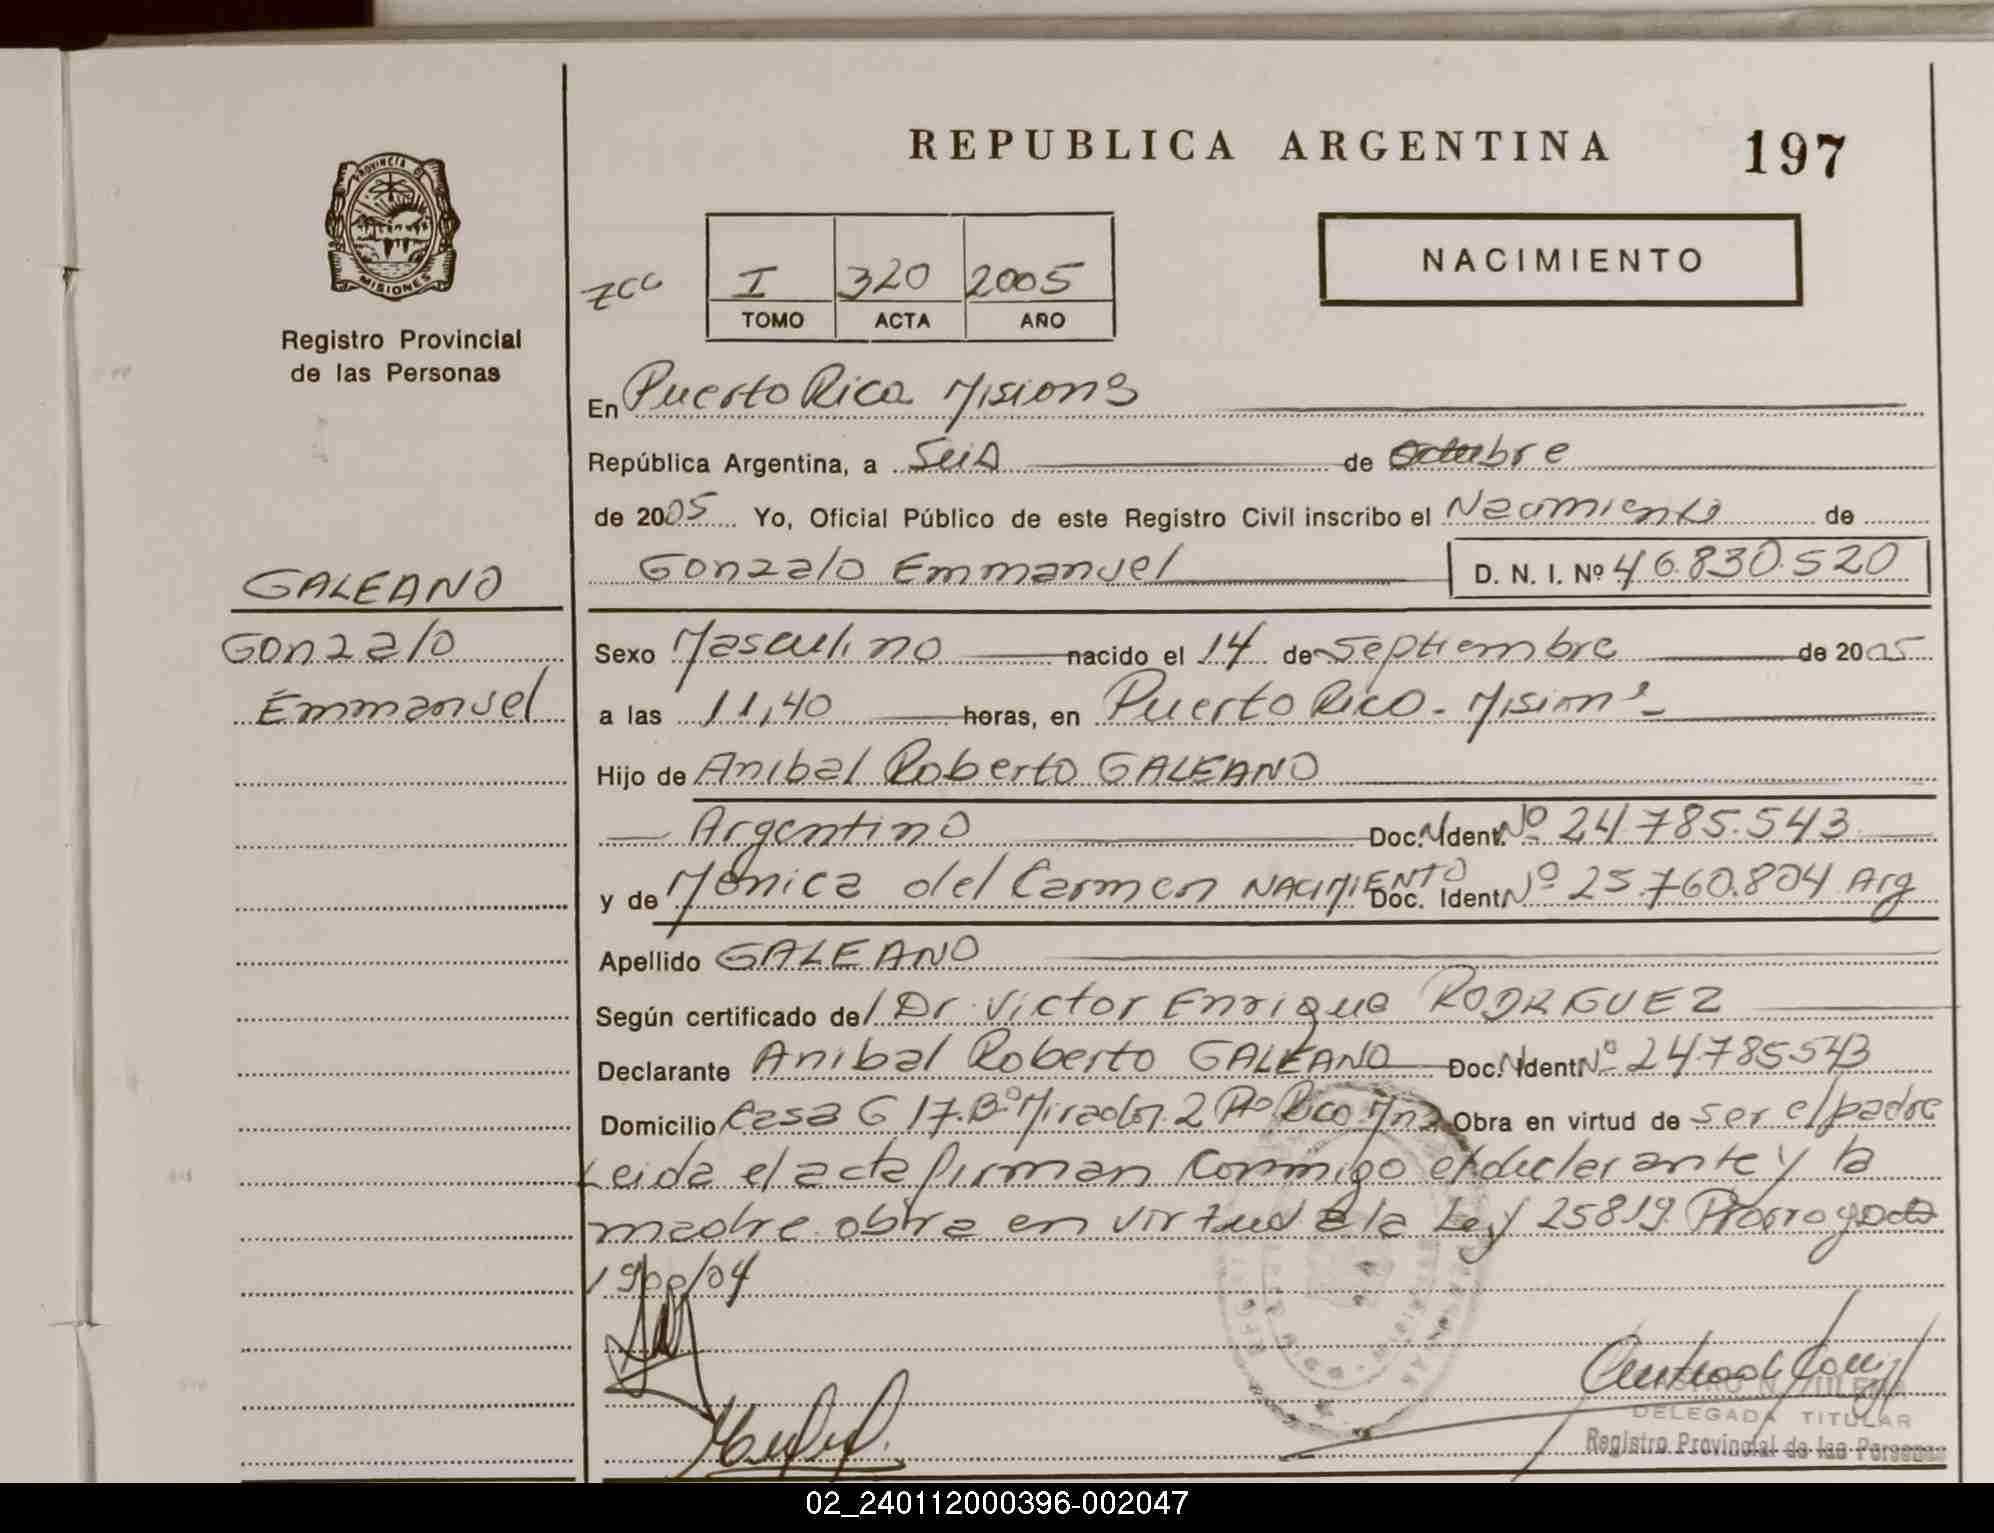 REPUBLICA ARGENTINA 197
PROVINCIA DE
MISIONES
Registro Provincial
de las Personas
I 320 2005
TOMO ACTA AÑO
NACIMIENTO
En Puerto Rica Misions
República Argentina, a Seis de Octubre
de 2005 Yo, Oficial Público de este Registro Civil inscribo el Nacimiento de
Gonzalo Emmanuel D. N. I. Nº 46.830.520
GALEANO
Gonzalo
Emmanuel
Sexo Masculino nacido el 14 de Septiembre de 2005
a las 11,40 horas, en Puerto Rico - Misiones
Hijo de Anibal Roberto GALEANO
Argentino Doc. N Ident. Nº 24.785.543
y de Monica del Carmen NACIMIENTO Doc. Ident Nº 25.760.804 Arg
Apellido GALEANO
Según certificado del Dr. Victor Enrique RODRGUEZ
Declarante Anibal Roberto GALEANO Doc. N Ident Nº 24785543
Domicilio Casa G 17. Bº Mirador 2 Pto Rico Mns Obra en virtud de ser el padre
Leida el acta firman conmigo el declarante y la
madre obra en virtud a la Ley 25819. Prorrogada
1900/04
CASTRO N. ZULEMA
DELEGADA TITULAR
Registro Provincial de las Personas
02_240112000396-002047